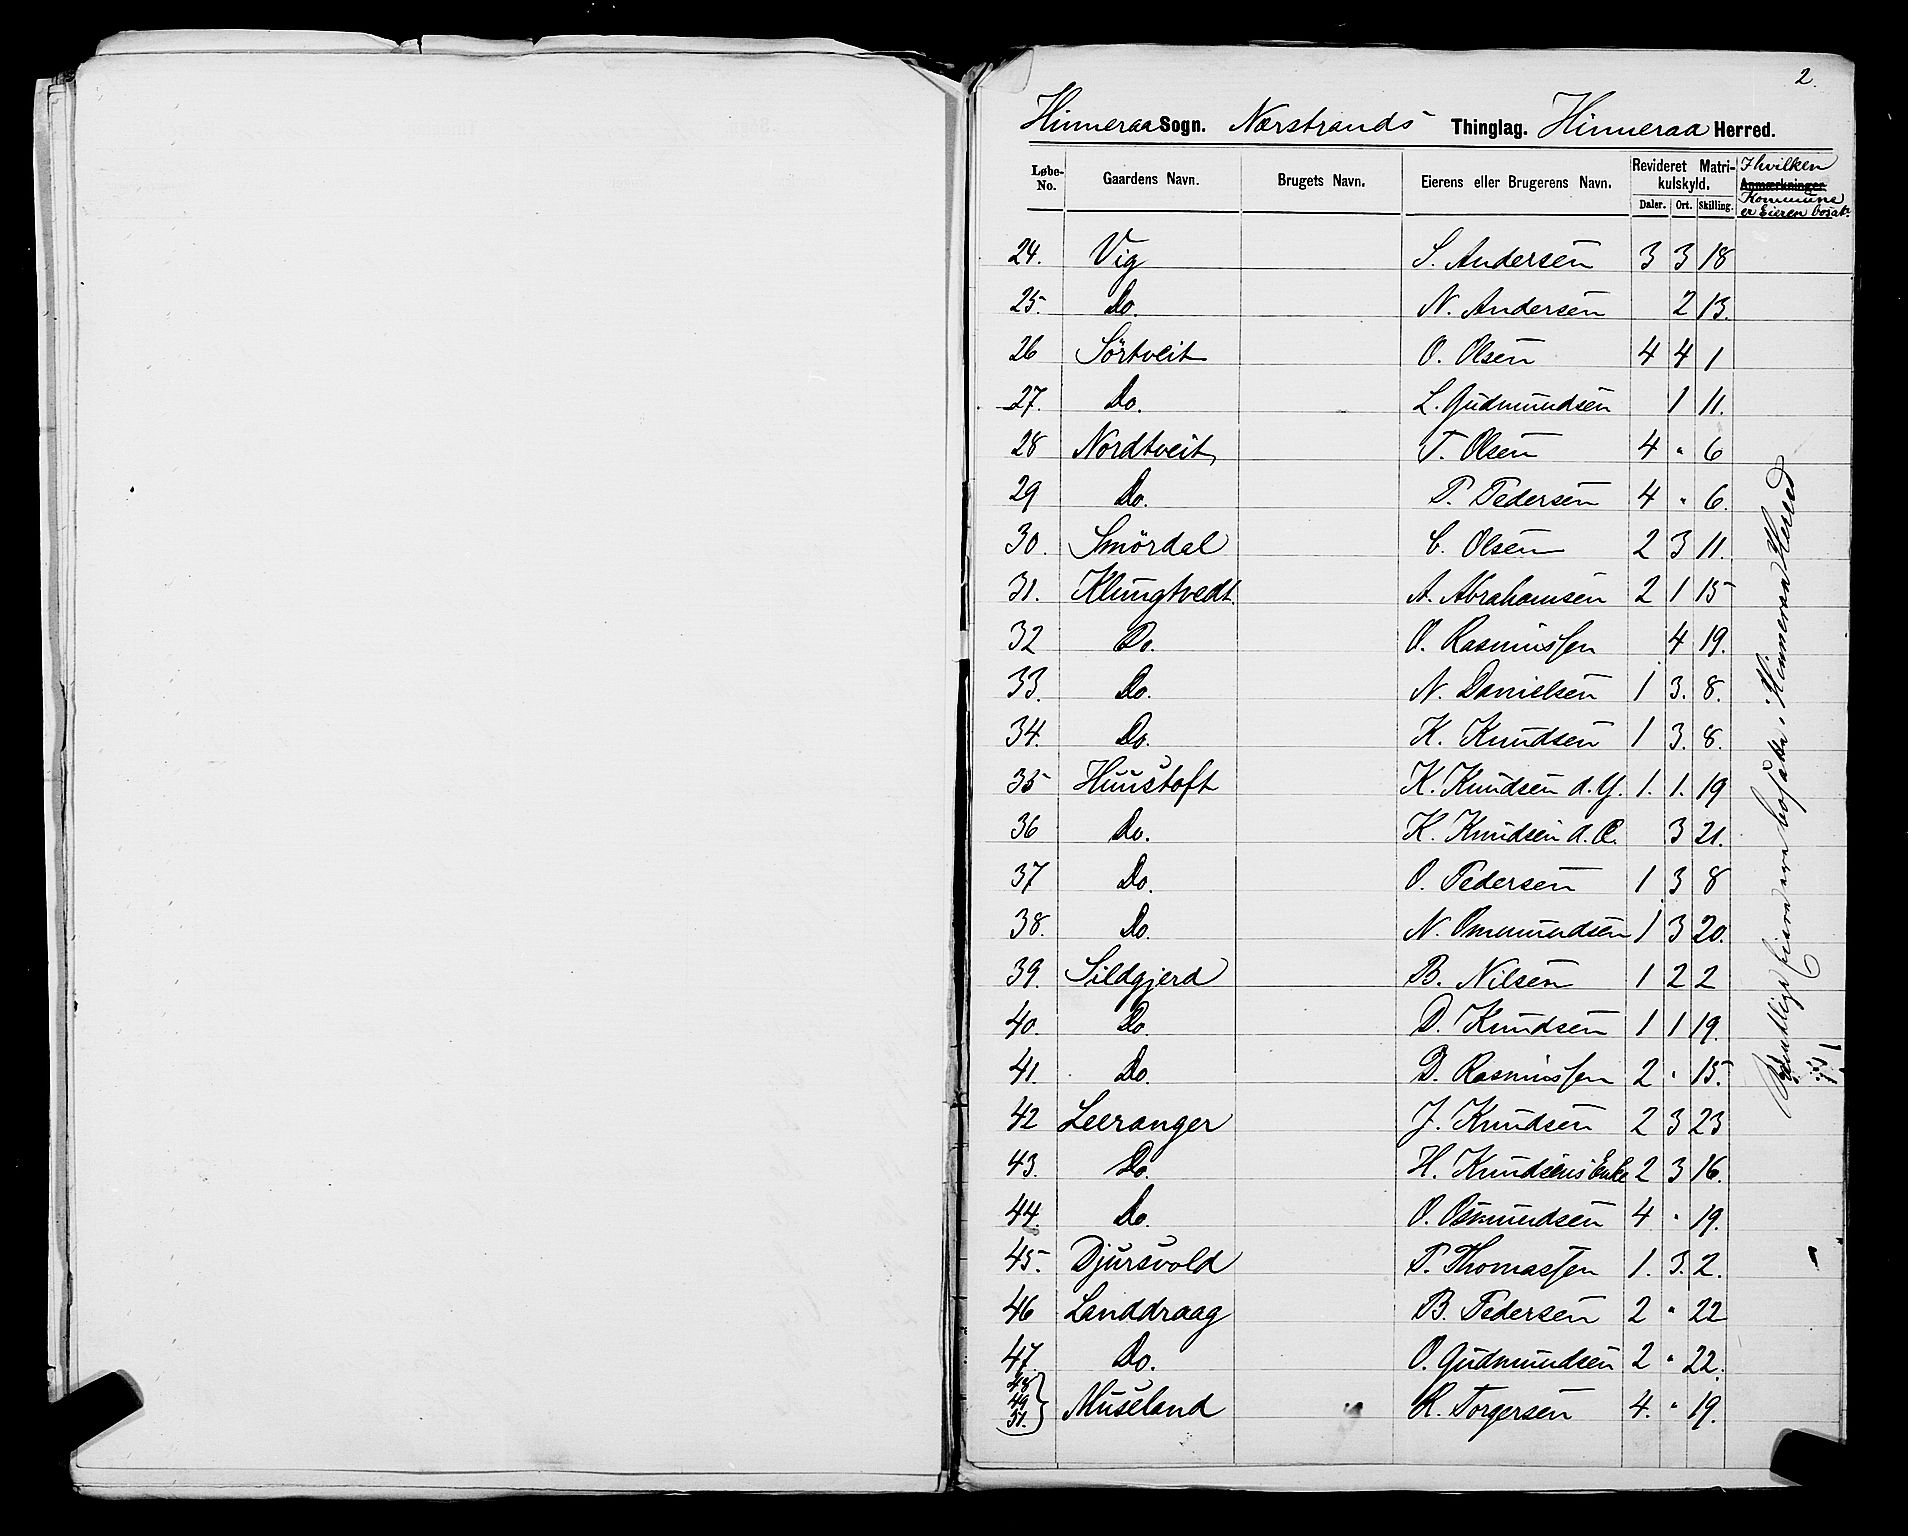 2.
Hinneraa Sogn. Nærstrands Thinglag. Hinneraa Herred.
Løbe-No. Gaardens Navn. Brugets Navn. Eierens eller Brugerens Navn. Revideret Matrikulskyld. Daler. Ort. Skilling. I hvilken Anmærkninger. Kommune er Eieren bosat.
24. Vig S. Andersen 3 3 18
25. Do. N. Andersen 2 13.
26 Sörtveit O. Olsen 4 4 1
27. Do. L. Gudmundsen 1 11.
28 Nordtveit T. Olsen 4 " 6
29 Do. P. Pedersen 4 " 6.
30. Smördal C. Olsen 2 3 11.
31. Klungtvedt. A. Abrahamsen 2 1 15
32 Do. O. Rasmussen 4 19.
33. Do. N. Danielsen 1 3. 8.
34. Do. K. Knudsen 1 3. 8.
35 Huustoft K. Knudsen d. Y. 1. 1. 19
36 Do. K. Knudsen d. Æ. 3 21.
37 Do. O. Pedersen 1 3 8
38. Do. N. Ommundsen 1 3 20.
39. Sildgjerd B. Nilsen 1 2 2
40. Do D. Knudsen 1 1 19.
41. Do. D. Rasmussen 2 " 15.
42 Leeranger J. Knudsen 2 3 23
43. Do. H. Knudsens Enke 2 3 16.
44. Do. O. Osmundsen 4 " 19.
45. Djursvold P. Thomassen 1. 3. 2.
46 Landdraag B. Pedersen 2 " 22
47. Do. O. Gudmundsen 2 " 22.
48 49 51. Museland R. Torgersen 4. " 19.
Eiere ere bosatte i Hinneraa Herred